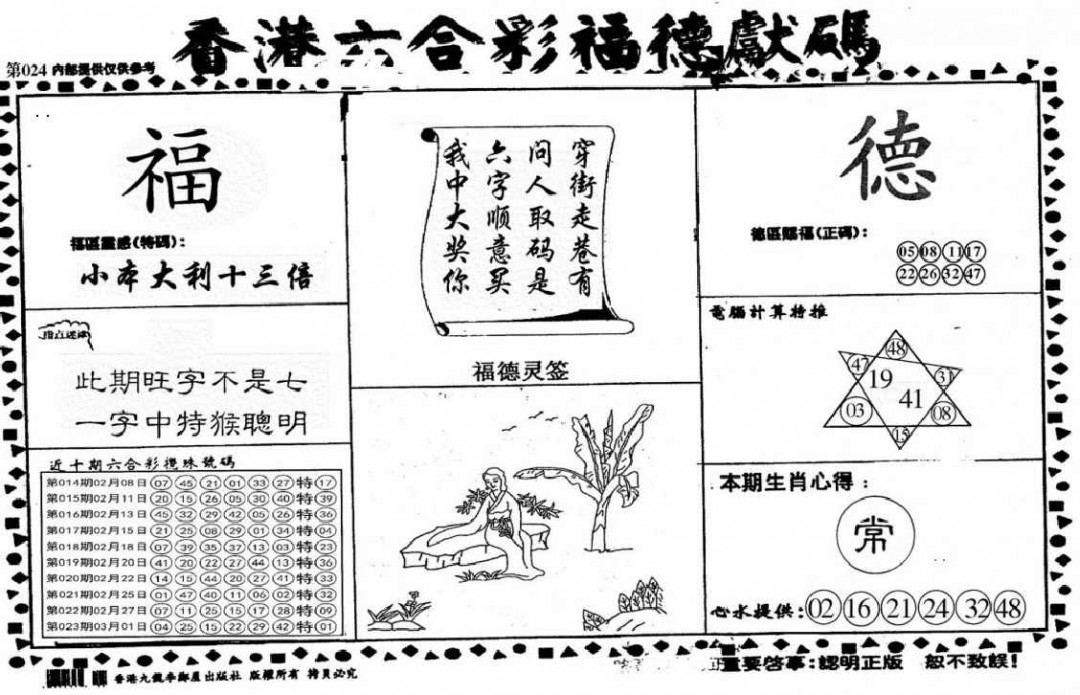 香港六合彩福德獻碼
第024 内部提供仅供参考
福
福區靈感(特碼):
小本大利十三倍
指点迷津
此期旺字不是七
一字中特猴聰明
近十期六合彩攪珠號碼
第014期02月08日 07 45 21 01 33 27 特 17
第015期02月11日 20 15 26 05 30 40 特 39
第016期02月13日 45 32 29 42 05 26 特 36
第017期02月15日 21 25 08 29 01 34 特 04
第018期02月18日 07 39 35 37 13 03 特 23
第019期02月20日 41 20 22 27 44 13 特 36
第020期02月22日 14 15 44 20 27 41 特 33
第021期02月25日 01 47 40 11 06 02 特 32
第022期02月27日 07 11 25 15 17 28 特 09
第023期03月01日 04 25 15 22 29 42 特 01
穿街走巷有
问人取码是
六字顺意买
我中大奖你
福德灵签
德
德區賜福(正碼):
05 08 11 17
22 26 32 47
電腦計算特推
48
47 19 31
03 41 08
15
本期生肖心得:
常
心水提供: 02 16 21 24 32 48
香港九龍李鄭屋出版社 版權所有 拷貝必究
重要啓事:認明正版 恕不致誤!